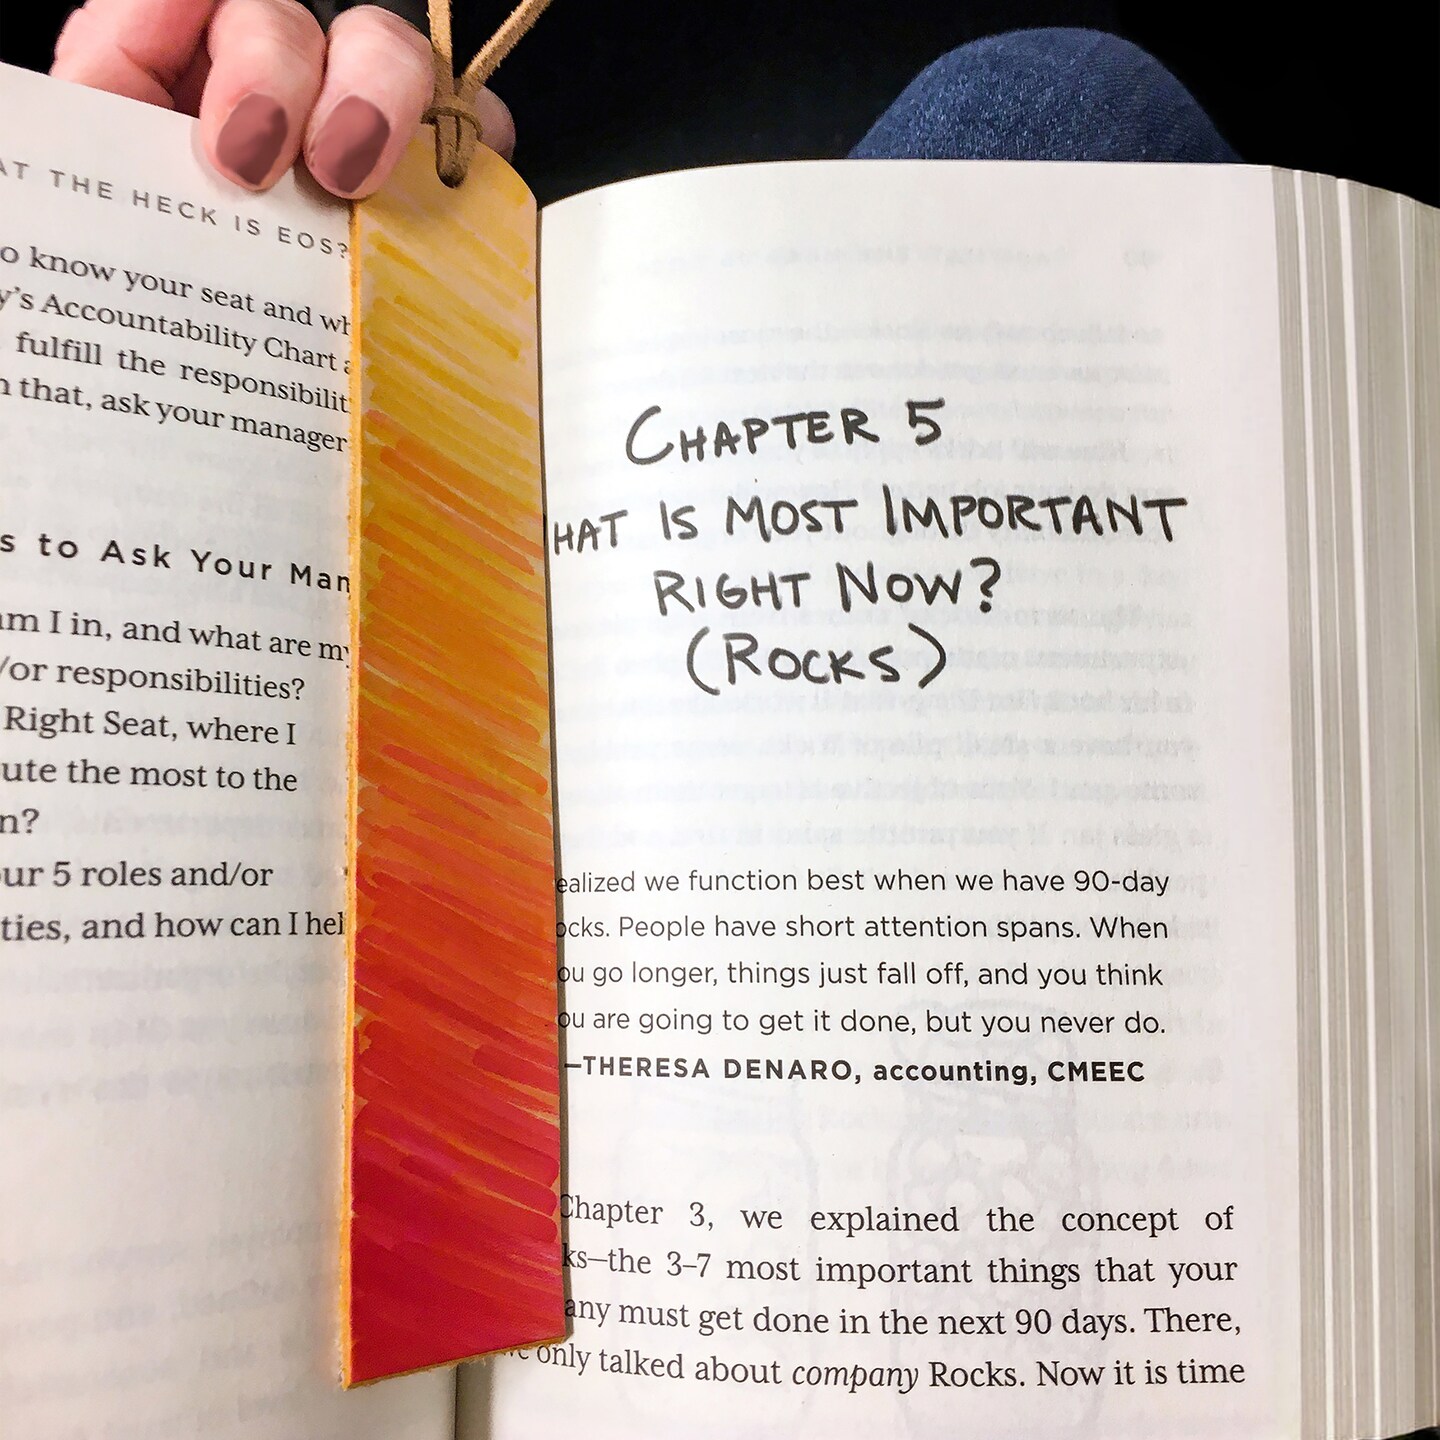 AT THE HECK IS EOS?
o know your seat and wh
y's Accountability Chart a
fulfill the responsibilit
n that, ask your manager
s to Ask Your Man
am I in, and what are my
/or responsibilities?
Right Seat, where I
ute the most to the
n?
our 5 roles and/or
ties, and how can I hel
CHAPTER 5
HAT IS MOST IMPORTANT
RIGHT NOW?
(ROCKS)
ealized we function best when we have 90-day
ocks. People have short attention spans. When
ou go longer, things just fall off, and you think
ou are going to get it done, but you never do.
—THERESA DENARO, accounting, CMEEC
Chapter 3, we explained the concept of
ks—the 3–7 most important things that your
any must get done in the next 90 days. There,
we only talked about company Rocks. Now it is time